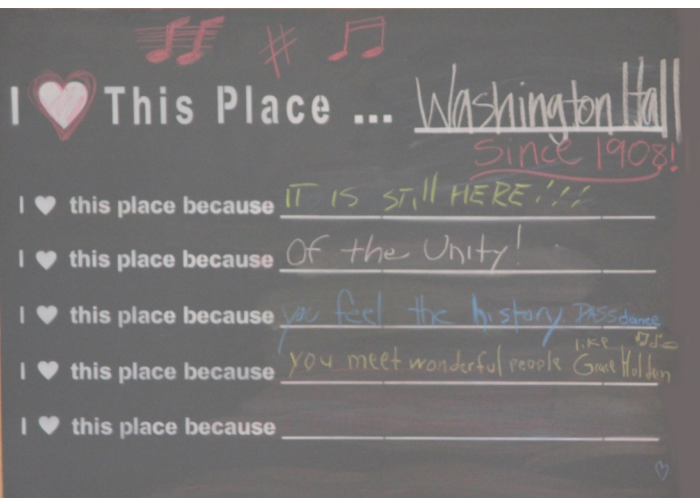 I ♥ This Place ... Washington Hall
Since 1908!
I ♥ this place because IT IS STill HERE!!!
I ♥ this place because Of the Unity!
I ♥ this place because you feel the history DASSdance
I ♥ this place because you meet wonderful people like Grace Holden
I ♥ this place because